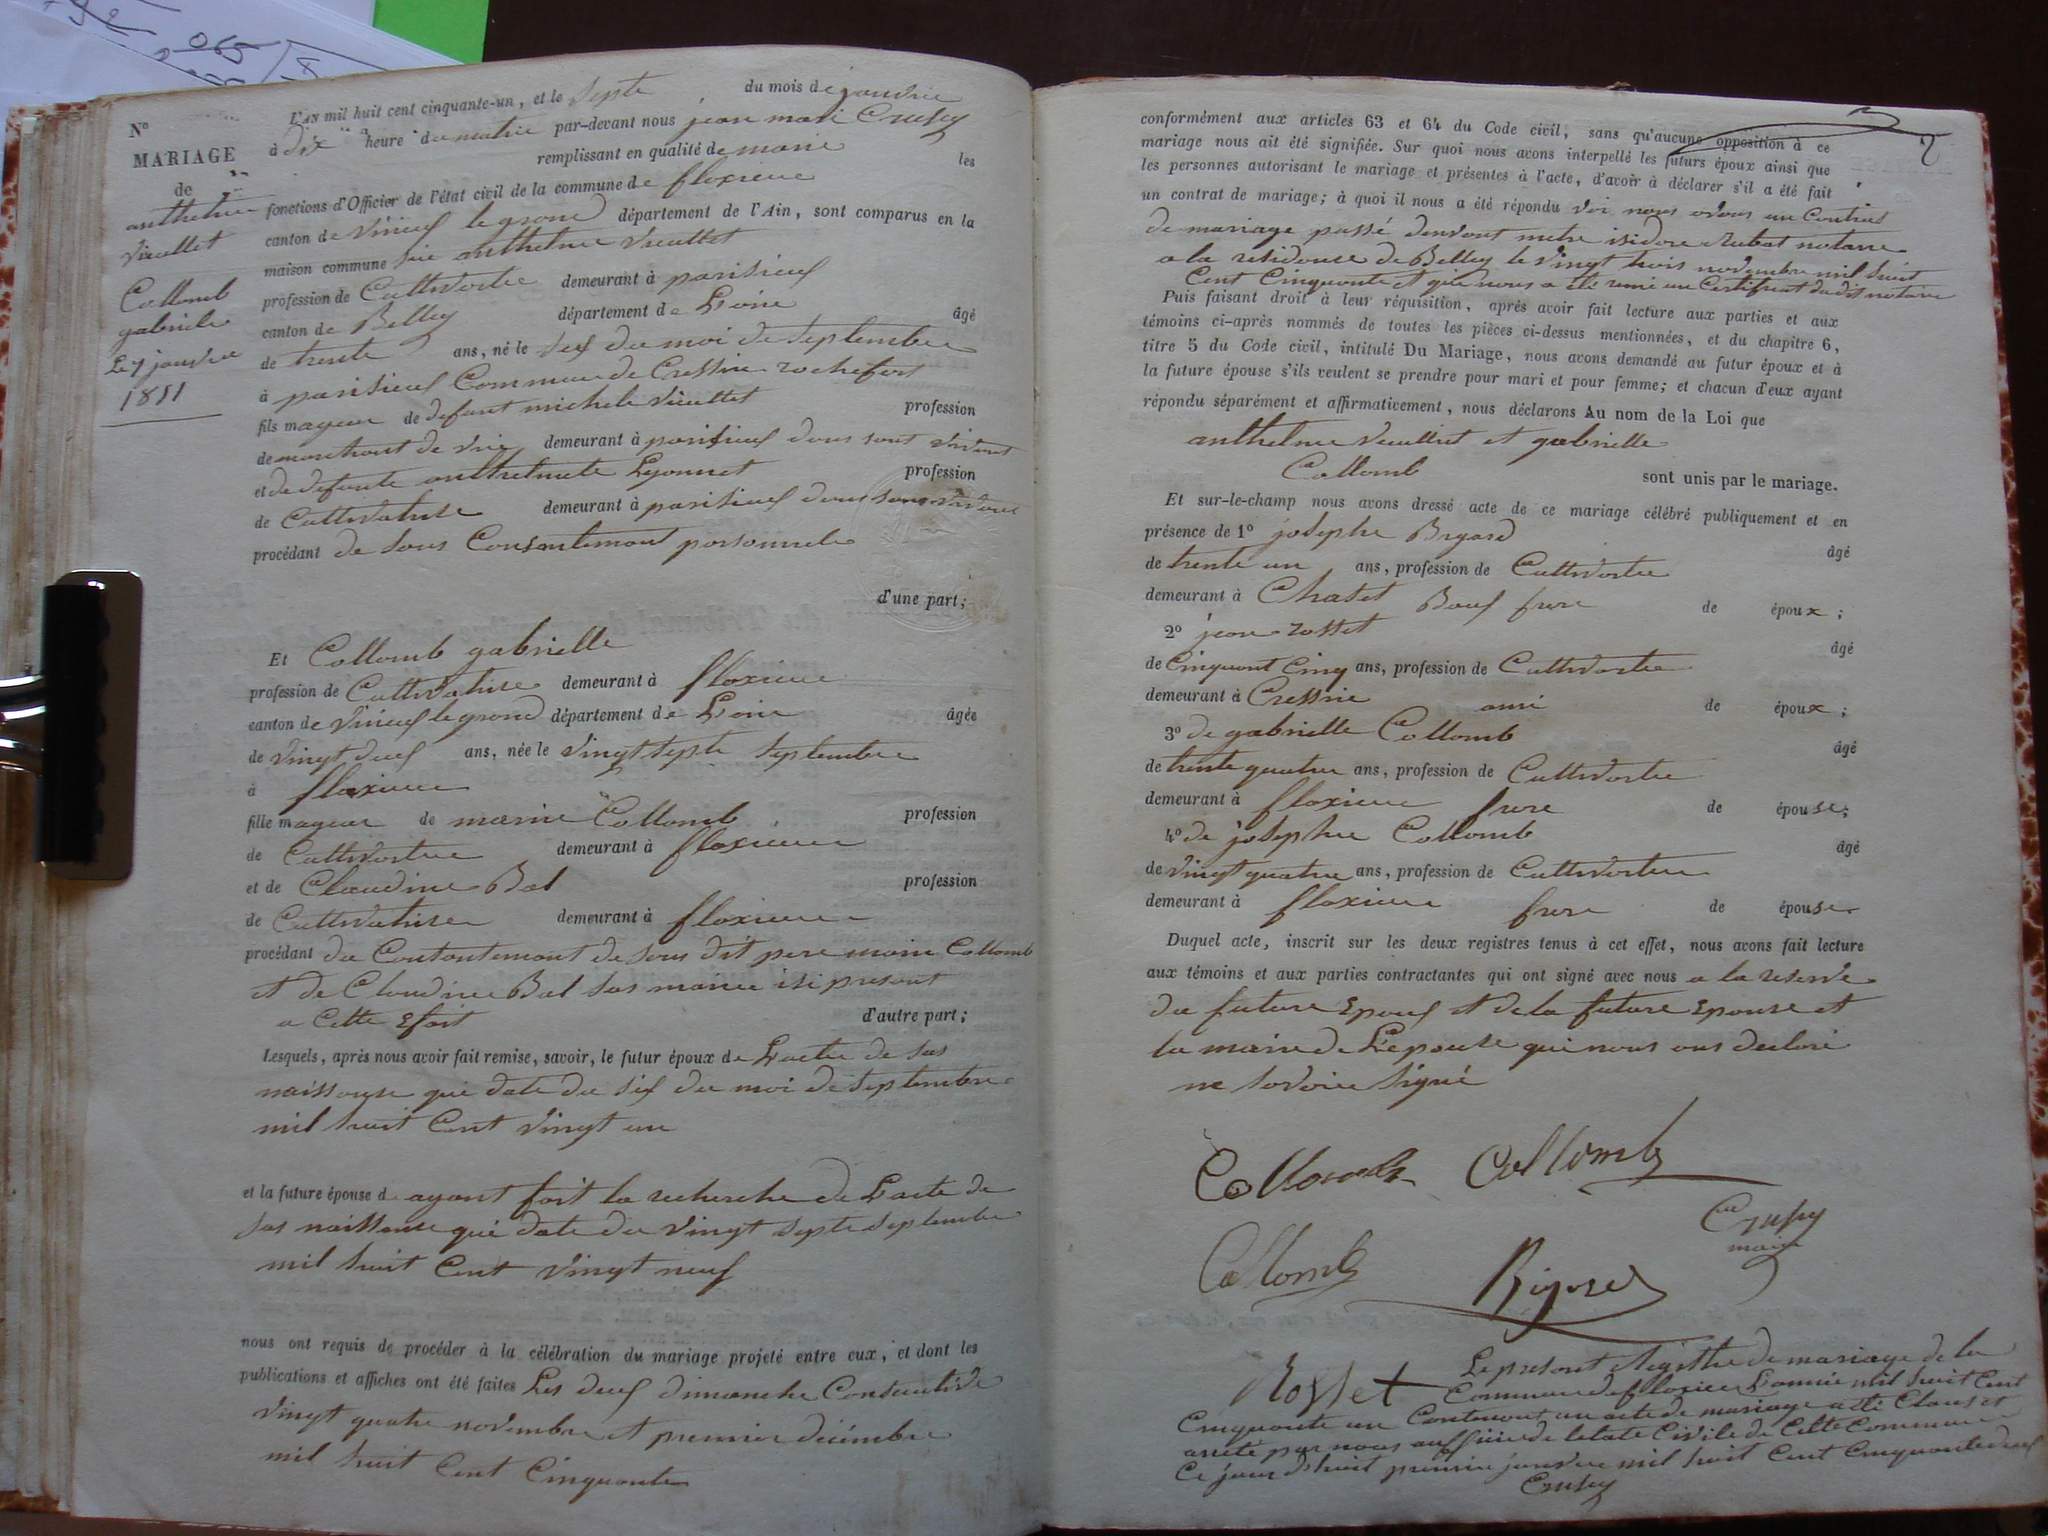 L'AN mil huit cent cinquante-un, et le septe du mois de janvier
N°
à dix heure du matin par-devant nous jean marie Crussy
MARIAGE
remplissant en qualité de maire les
de
fonctions d'Officier de l'état civil de la commune de floxieu
anthelme
canton de virieux le grand département de l'Ain, sont comparus en la
vieullet
maison commune anthelme vieullet
Collomb
profession de Cultivateur demeurant à parisieux
gabriele
canton de Belley département de L'ain âgé
Le 7 janvier
de trente ans, né le six du moi de septembre
1851
à parisieux Commune de Cressin rochefort
fils mageur de defunt michele vieullet profession
de demeurant à parisieux dans sont vivant
et de defunte anthelmete Lyonnet profession
de Cultivatrise demeurant à parisieux dans sons vivant
procédant de sons Consentement personnele
d'une part;
Et Collomb gabrielle
profession de Cultivatrise demeurant à floxieu
canton de virieux le grand département de L'ain âgée
de vingt deux ans, née le vingt septe septembre
à floxieu
fille mageur de marin Collomb profession
de Cultivateur demeurant à floxieu
et de Claudine Bal profession
de Cultivatrise demeurant à floxieu
procédant du Contantemant de sons dit pere marin Collomb
et de Claudine Bal sas mairie isi present
a Cette Efait d'autre part;
Lesquels, après nous avoir fait remise, savoir, le futur époux de L'acte de sas
naissanse qui date du six du moi de septembre
mil huit Cent vingt un
et la future épouse d ayant fait la recherche de L'acte de
sas naissanse qui date du vingt septe septembre
mil huit Cent vingt neuf
nous ont requis de procéder à la célébration du mariage projeté entre eux, et dont les
publications et affiches ont été faites Les deux dimanche Consecutive
vingt quatre novembre et premier décémbre
mil huit Cent Cinquante
2
conformément aux articles 63 et 64 du Code civil, sans qu'aucune opposition à ce
mariage nous ait été signifiée. Sur quoi nous avons interpellé les futurs époux ainsi que
les personnes autorisant le mariage et présentes à l'acte, d'avoir à déclarer s'il a été fait
un contrat de mariage; à quoi il nous a été répondu nous avons un Contrat
de mariage passé devant metre isidore Rubat notaire
a la residanse de Belley le vingt trois novembre mil huit
Cent Cinquante et qui nous a été remi un Certificat du dit notaire
Puis faisant droit à leur réquisition, après avoir fait lecture aux parties et aux
témoins ci-après nommés de toutes les pièces ci-dessus mentionnées, et du chapitre 6,
titre 5 du Code civil, intitulé Du Mariage, nous avons demandé au futur époux et à
la future épouse s'ils veulent se prendre pour mari et pour femme; et chacun d'eux ayant
répondu séparément et affirmativement, nous déclarons Au nom de la Loi que
anthelme vieullet et gabrielle
Collomb sont unis par le mariage.
Et sur-le-champ nous avons dressé acte de ce mariage célébré publiquement et en
présence de 1° josephe Bigard âgé
de trente un ans, profession de Cultivateur
demeurant à Bauf frere de époux;
2° jean rosset âgé
de Cinquant Cinq ans, profession de Cultivateur
demeurant à Cressin ami de époux;
3° de gabrielle Collomb âgé
de trente quatre ans, profession de Cultivateur
demeurant à floxieu frere de épouse;
4° de josephe Collomb âgé
de vingt quatre ans, profession de Cultivateur
demeurant à floxieu frere de épouse
Duquel acte, inscrit sur les deux registres tenus à cet effet, nous avons fait lecture
aux témoins et aux parties contractantes qui ont signé avec nous a la reserve
du future Epoux et de la future Epouse et
la maire de L'epouse qui nous ons declaré
ne savoire signé
Collomb Collomb
Crussy
maire
Collomb Bigard
Rosset Le présent Registre de mariage de la
Commune de floxieu L'année mil huit Cent
Cinquante un Contenant un acte de mariage a été Claus et
areté par nous aufficie de letate Civile de Cette Commune
Ce jour d'huit premier janvier mil huit Cent Cinquante deux
Crussy